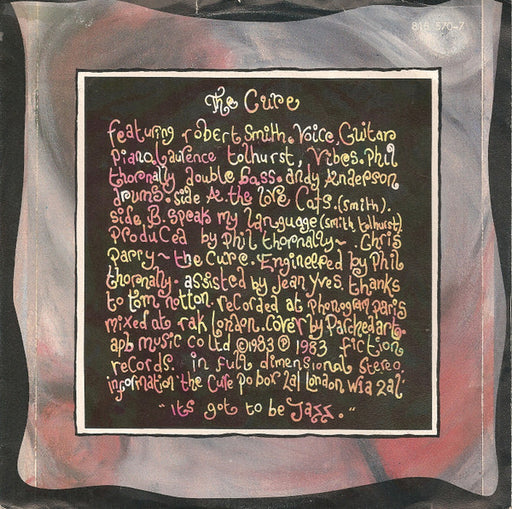 818 570-7
The Cure
featuring robert smith. Voice. Guitar
piano. Laurence tolhurst, Vibes. Phil
thornally double bass. andy Anderson
drums. side A. the love Cats. (smith).
side B. speak my language (smith tolhurst)
produced by phil thornally~ Chris
parry~ the Cure. Engineered by Phil
thornally. assisted by jean Yves. thanks
to tom notton. recorded at phonogram paris
mixed at rak london. Cover by Parchedart.
apb music co ltd ©1983 ℗ 1983 fiction
records. in full dimensional stereo
information the Cure po box 2al london. w1a 2al
"its got to be Jazz."